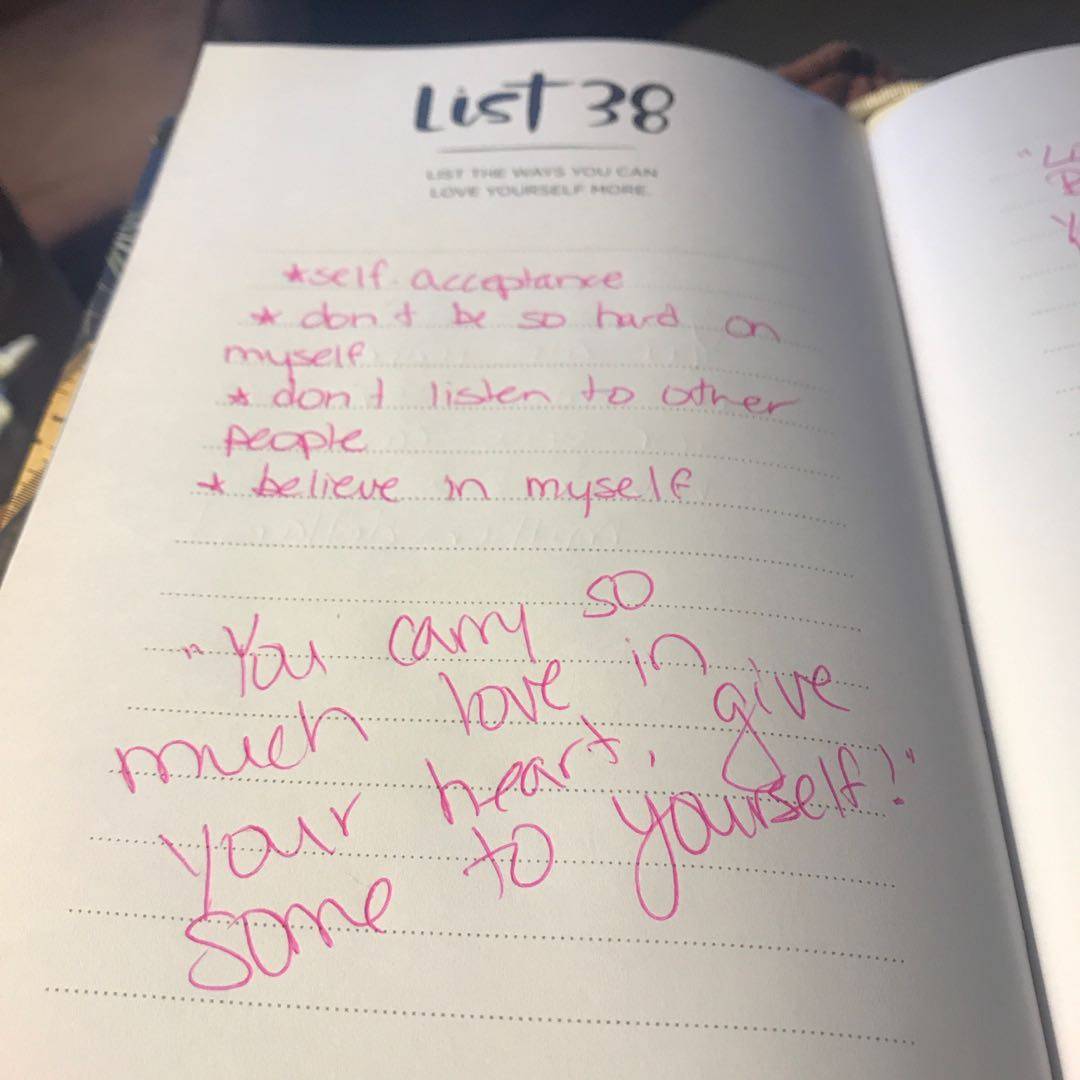 List 38
LIST THE WAYS YOU CAN
LOVE YOURSELF MORE.
*self acceptance
* don't be so hard on
myself
* don't listen to other
people
* believe in myself
"You carry so
much love in
your heart, give
some to yourself!"